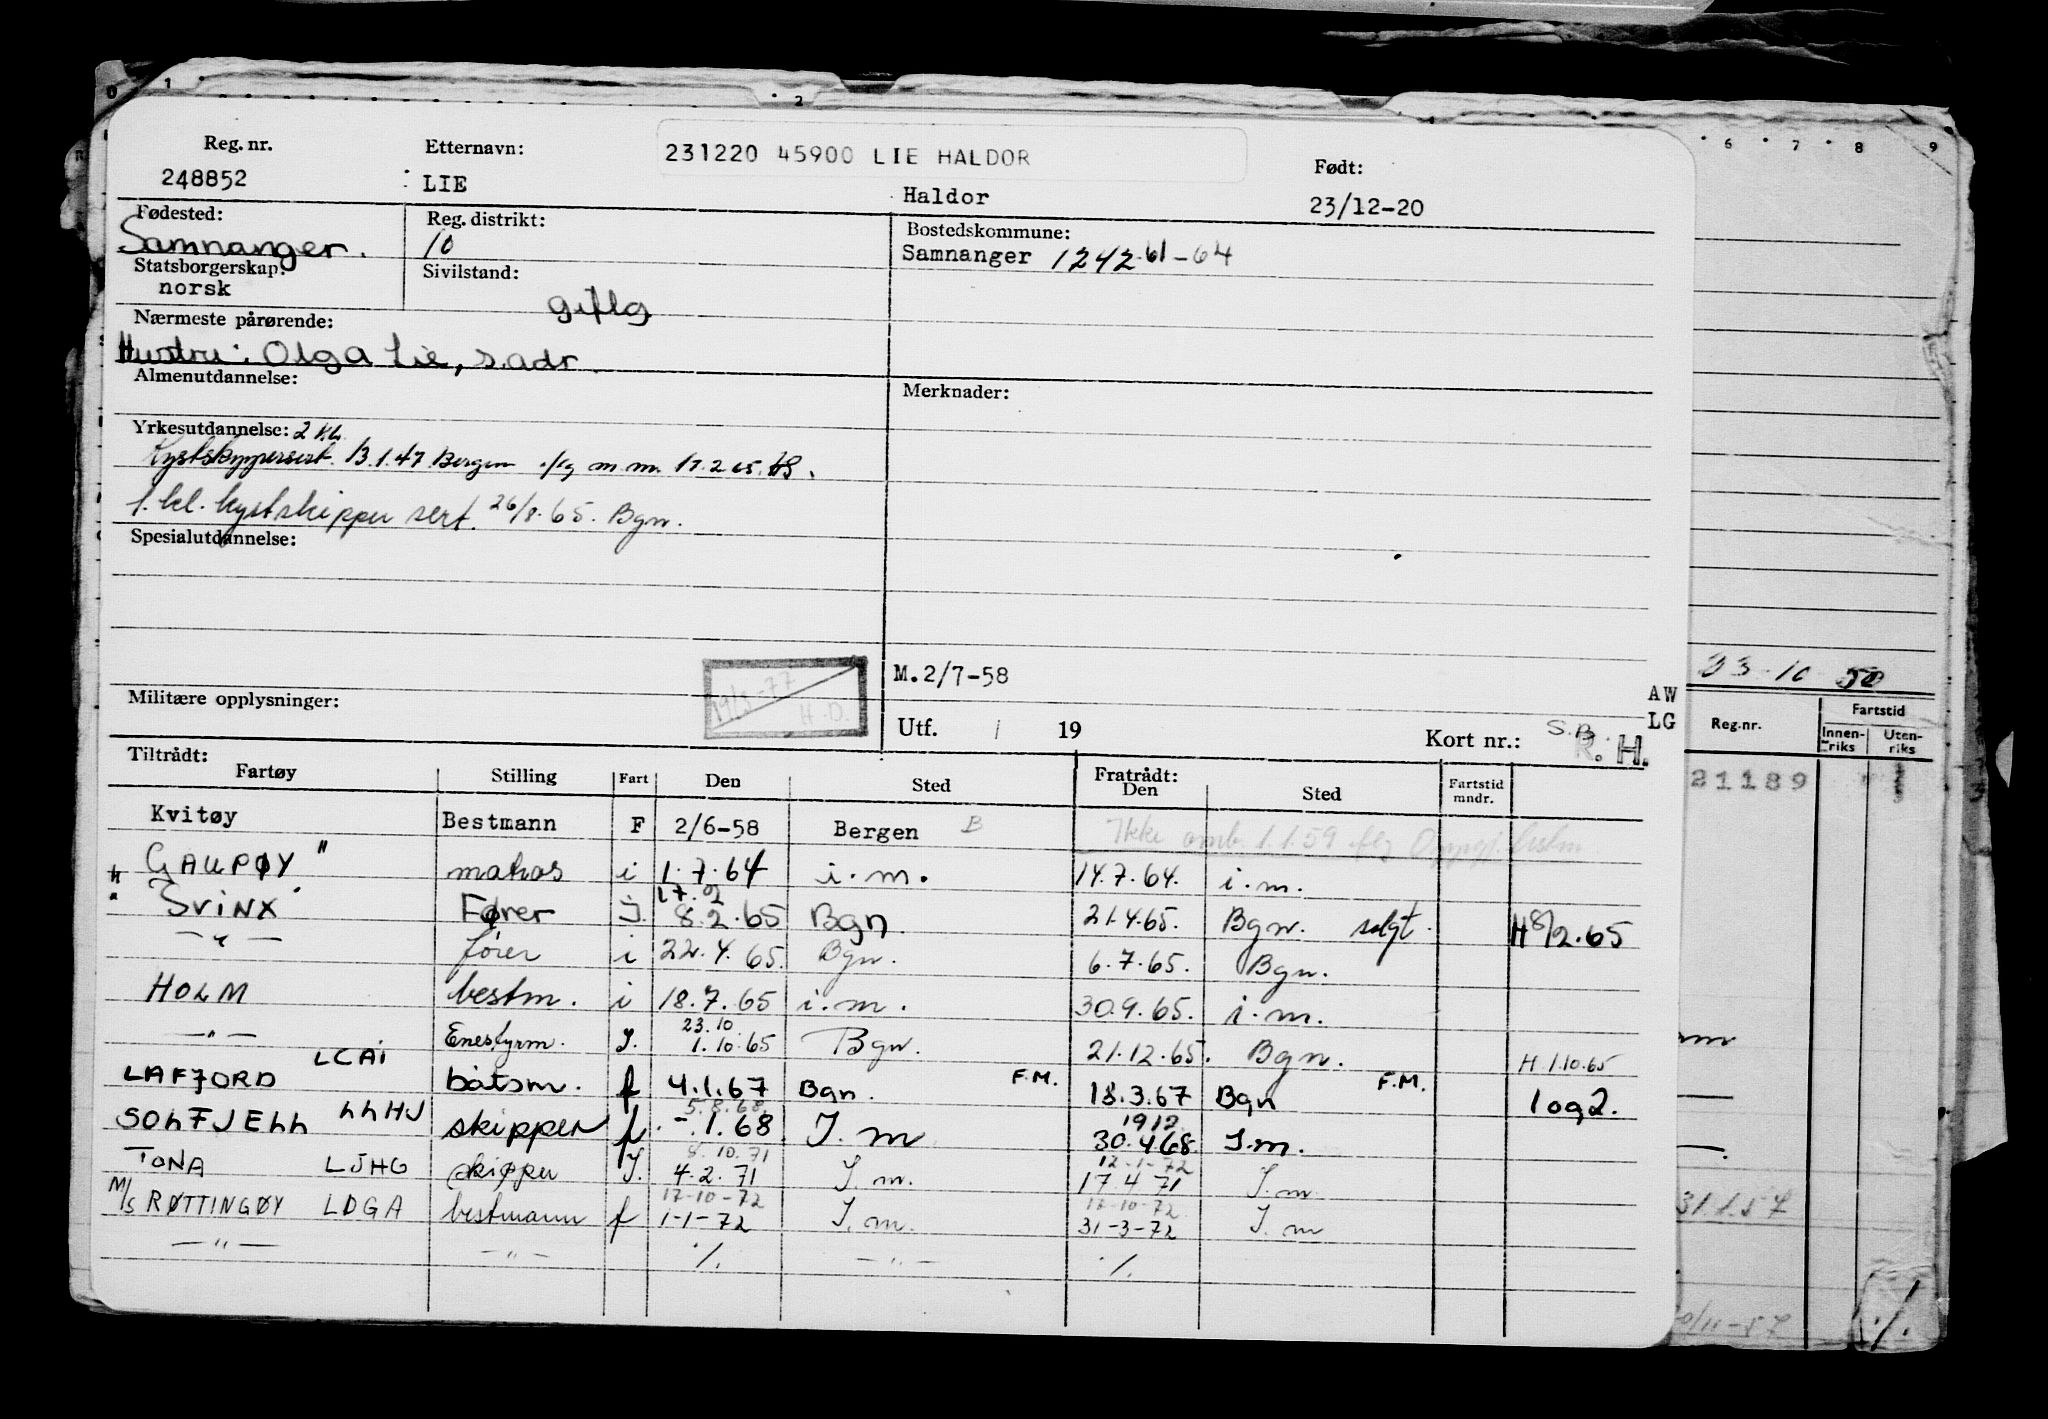 0 1 2 6 7 8 9
Reg. nr. Etternavn: 231220 45900 LIE HALDOR Født:
248852 LIE Haldor 23/12-20
Fødested: Reg. distrikt: Bostedskommune:
Samnanger. 10 Samnanger 1242 61-64
Statsborgerskap: Sivilstand:
norsk gift
Nærmeste pårørende:
Hustru: Olga Lie, s.adr.
Almenutdannelse: Merknader:
Yrkesutdannelse: 2 kl.
Kystskippersert. 13.1.47 Bergen m.m. 17.2.65. HS.
1. kl. kystskipper sert. 26/8.65. Bgn.
Spesialutdannelse:
M.2/7-58
19/3-77 H.D.
Militære opplysninger:
AW
LG
Utf. / 19 Kort nr.: S.B. R.H.
23-10 50
Reg.nr. Fartstid
Innen-riks Uten-riks
21189
Tiltrådt: Fratrådt:
Fartøy Stilling Fart Den Sted Den Sted Fartstid mndr.
Kvitøy Bestmann F 2/6-58 Bergen B Ikke omb. 1.1.59
GAUPØY " matros i 1.7.64 i.m. 14.7.64. i.m.
" SVINX Fører I. 17.2 8.2.65 Bgn 21.4.65. Bgn. solgt. H 8/2.65
—"— fører i 22.4.65. Bgn. 6.7.65. Bgn.
HOLM bestm. i 18.7.65 i.m. 30.9.65. i.m.
—"— Enestyrm. I. 23.10. 1.10.65 Bgn. 21.12.65. Bgn. H 1.10.65
LAFJORD LCAI båtsm. f 4.1.67 Bgn. F.M. 18.3.67 Bgn F.M. 1 og 2.
SOLFJELL LLHJ skipper f 5.8.68. -.1.68 I.m 1912 30.4.68 I.m.
TONA LJHG skipper I. 8.10.71 4.2.71 I.m. 12-1-72 17.4.71 I.m
M/S RØTTINGØY LDGA bestmann f 17-10-72 1-1-72 I.m. 17-10-72 31-3-72 I.m
—"— —"— ./. —"— ./.
31.1.57
11-57
./.